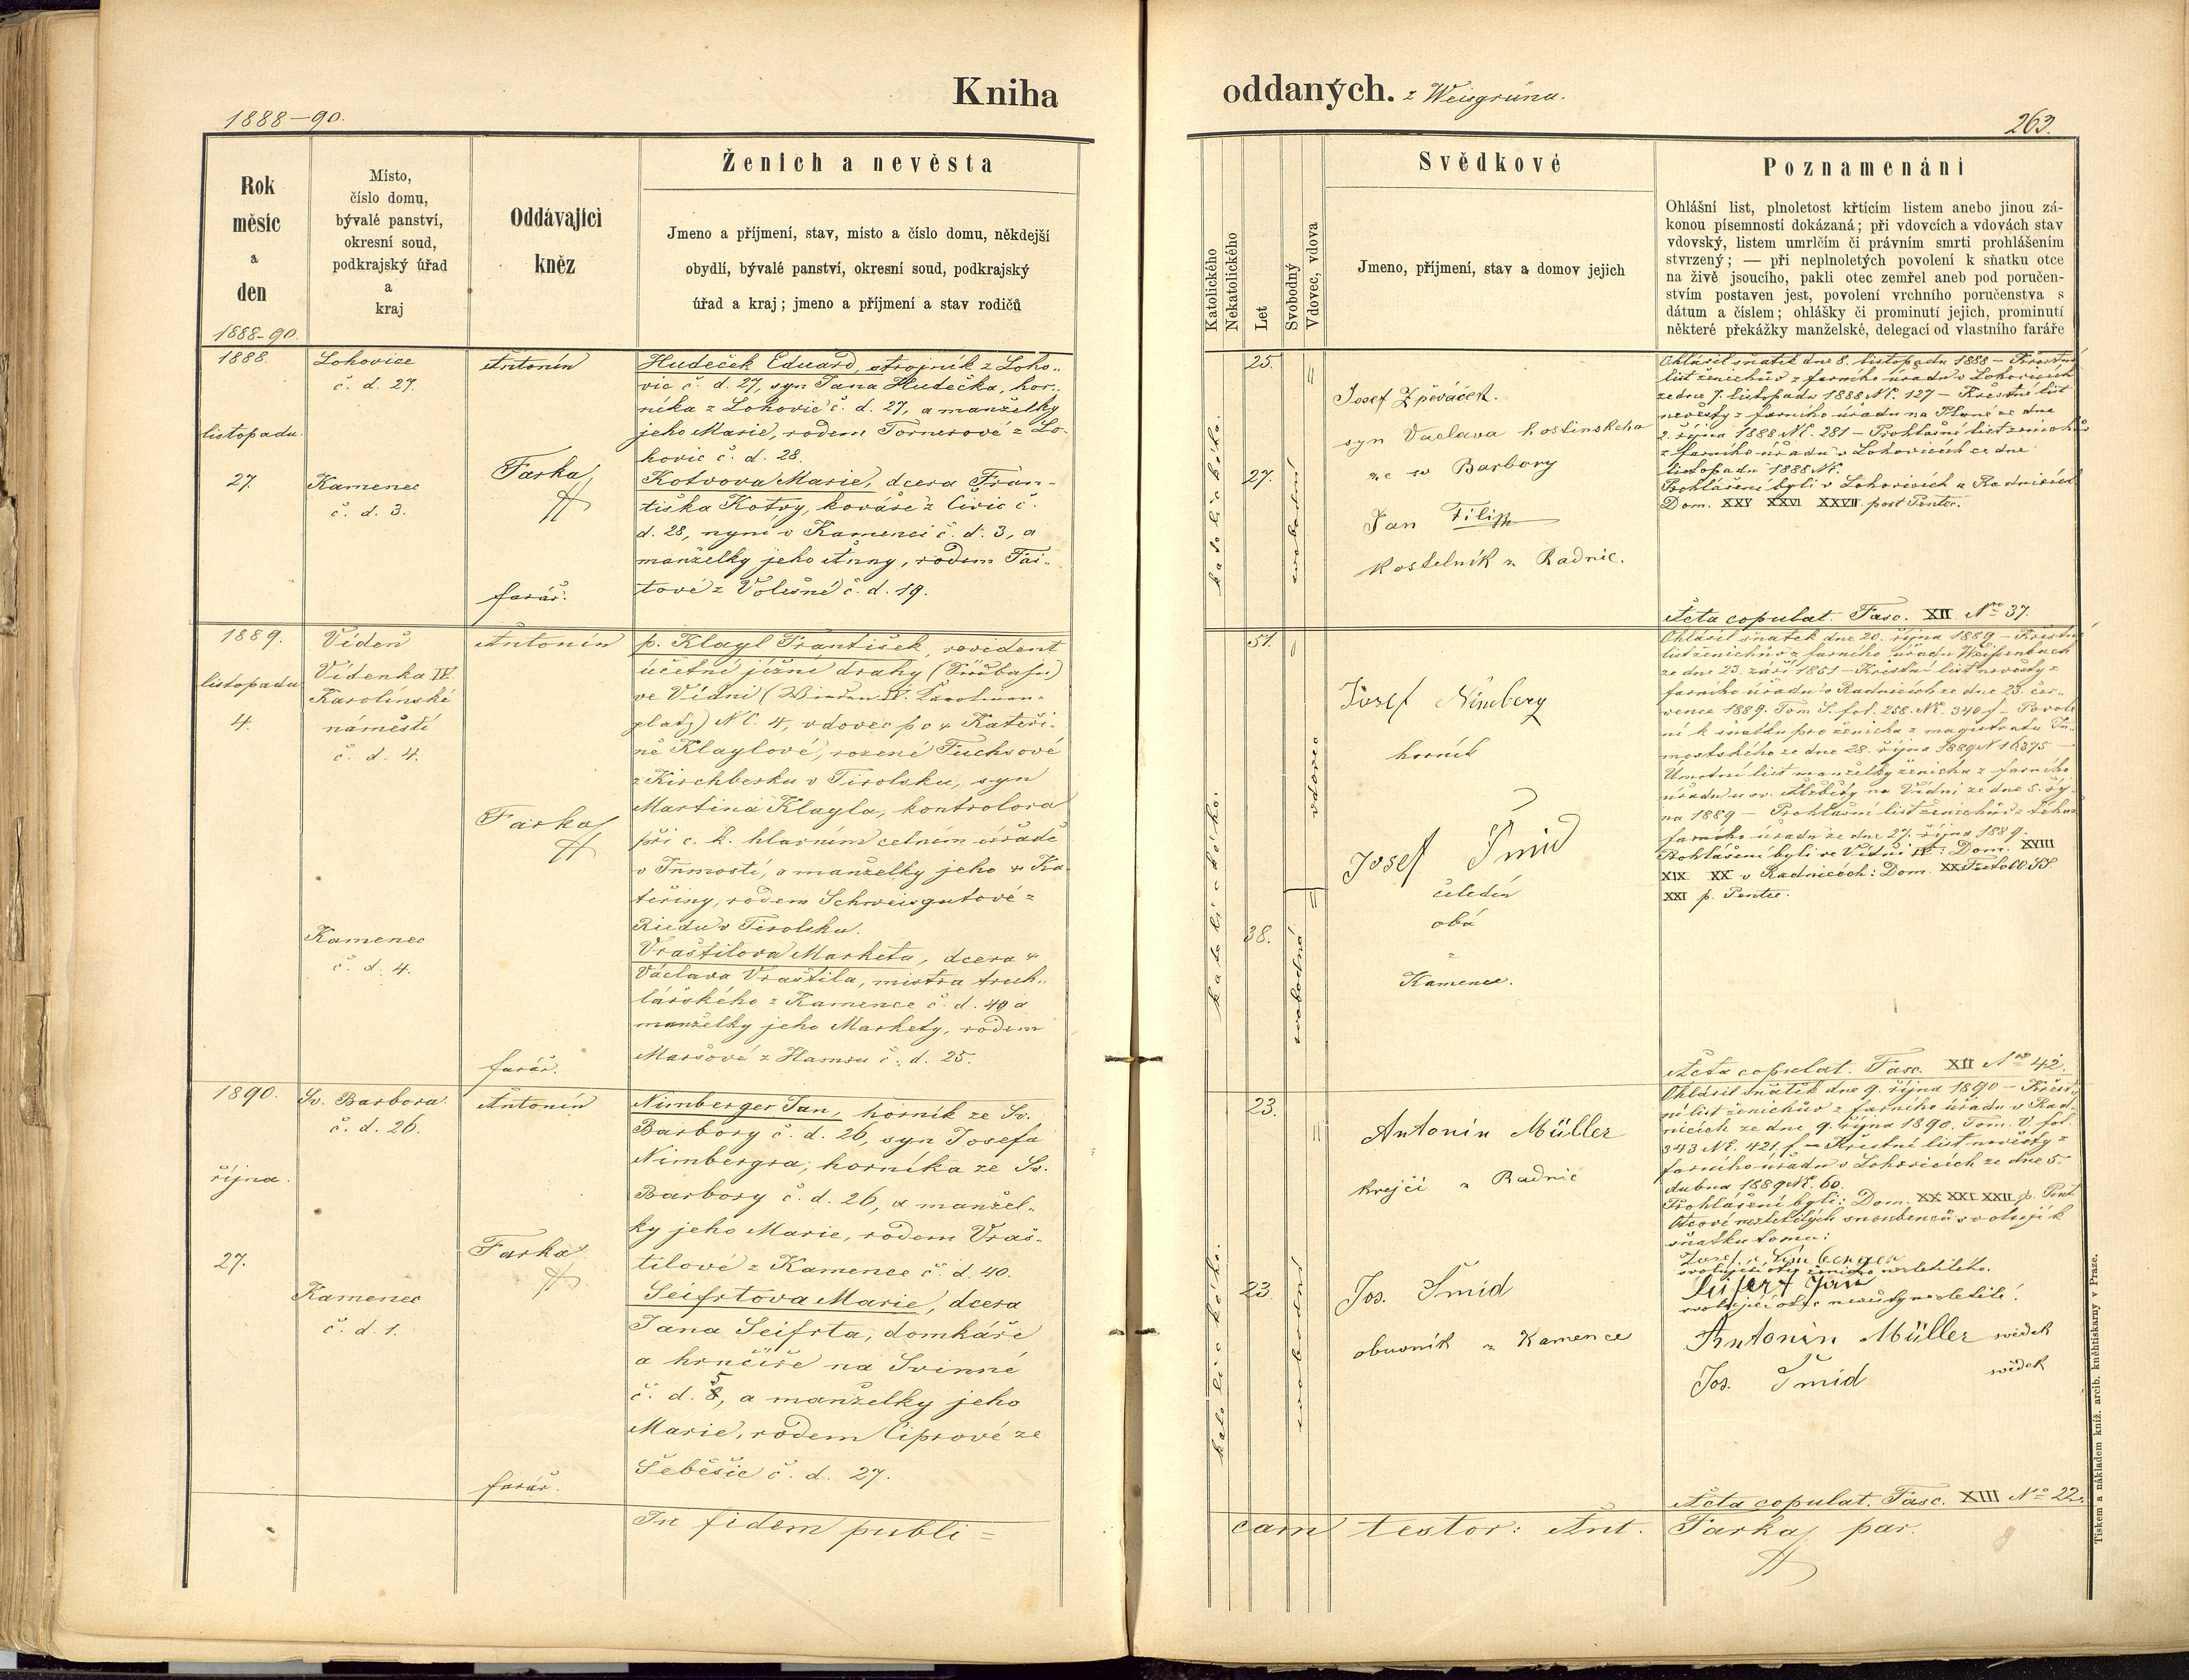 Kniha
oddaných. z Weisgrünu.
1888–90.
263.
Rok
měsíc
a
den
1888-90.
Místo,
číslo domu,
bývalé panství,
okresní soud,
podkrajský úřad
a
kraj
Oddávající
kněz
Ženich a nevěsta
Jmeno a příjmení, stav, místo a číslo domu, někdejší
obydlí, bývalé panství, okresní soud, podkrajský
úřad a kraj; jmeno a příjmení a stav rodičů
Katolického
Nekatolického
Let
Svobodný
Vdovec, vdova
Svědkové
Jmeno, příjmení, stav a domov jejich
Poznamenáni
Ohlášní list, plnoletost křtícím listem anebo jinou zá-
konou písemností dokázaná; při vdovcích a vdovách stav
vdovský, listem umrlčím či právním smrti prohlášením
stvrzený; — při neplnoletých povolení k sňatku otce
na živě jsoucího, pakli otec zemřel aneb pod poručen-
stvím postaven jest, povolení vrchního poručenstva s
dátum a číslem; ohlášky či prominutí jejich, prominutí
některé překážky manželské, delegací od vlastního faráře
1888.
listopadu
27.
Lohovice
č. d. 27.
Kamenec
č. d. 3.
Antonín
Farka
farář.
Hudeček Eduard, strojník z Loho-
vic č. d. 27, syn Jana Hudečka, hor-
níka z Lohovic č. d. 27, a manželky
jeho Marie, rodem Tornerové z Lo-
hovic č. d. 28.
Kotvova Marie, dcera Fran-
tiška Kotvy, kováře z Čivic č.
d. 28, nyní v Kamenci č. d. 3, a
manželky jeho Anny, rodem Tai-
tové z Volešné č. d. 19.
katolického.
25.
27.
svobodní
Josef Zpěváček.
syn Vaclava hostinskeho
ze sv Barbory
Jan Filip
kostelník z Radnic.
Ohlásil sňatek dne 8. listopadu 1888 – Křestní
list ženichův z farního úřadu v Lohovicích
ze dne 7. listopadu 1888 Nč. 127 – Křestní list
nevěsty z farního úřadu na Plané ze dne
2. října 1888 Nč. 281 – Prohlášní list ženichův
z farního úřadu v Lohovicích ze dne
listopadu 1888 Nč.
Prohlášení byli v Lohovicích a Radnicích
Dom. XXV XXVI XXVII post Pentec.
Acta copulat. Fasc. XII No 37.
1889.
listopadu
4.
Vídeň
Vídenka IV.
Karolinské
náměstí
č. d. 4.
Kamenec
č. d. 4.
Antonín
Farka
farář.
p. Klagl František, revident
účetní jižní dráhy (Südbahn)
ve Vídni (Wieden IV. Karolinen-
platz) Nč. 4, vdovec po Kateři-
ně Klaglové, rozené Fuchsové
z Kirchberku v Tirolsku, syn
Martina Klagla, kontrolora
při c. k. hlavním celním úřadě
v Inmostí, a manželky jeho Ka-
teřiny, rodem Schweisgutové z
Riedu v Tirolsku.
Vraštilova Marketa, dcera
Václava Vraštila, mistra truh-
lářského z Kamence č. d. 40 a
manželky jeho Markety, rodem
Maršové z Hamru č. d. 25.
katolického.
51.
38.
vdovec
svobodná
Josef Nimberg
horník
Josef Šmid
čeledín
oba
z
Kamence.
Ohlásil sňatek dne 20. října 1889 – Křestní
list ženichův z farního úřadu Weißenbach
ze dne 23. září 1851 – Křestní list nevěsty z
farního úřadu v Radnicích ze dne 23. čer-
vence 1889. Tom S. fol. 258. Nč. 340 f – Povole-
ní k sňatku pro ženicha z magistratu In-
mostského ze dne 28. října 1889 N 16375 –
Úmrtní list manželky ženicha z farního
úřadu u sv. Alžběty na Vídni ze dne 5. říj-
na 1889 – Prohlášní list ženichův z téhož
farního úřadu ze dne 27. října 1889.
Prohlášeni byli ve Vídni IV: Dom. XVIII
XIX XX v Radnicích: Dom. XX Festo OO. SS.
XXI p. Pentec.
Acta copulat. Fasc. XII No 42.
1890.
října
27.
Sv. Barbora
č. d. 26.
Kamenec
č. d. 1.
Antonín
Farka
farář.
Nimberger Jan, horník ze Sv.
Barbory č. d. 26, syn Josefa
Nimbergra, horníka ze Sv.
Barbory č. d. 26, a manžel-
ky jeho Marie, rodem Vraš-
tilové z Kamence č. d. 40.
Seifrtova Marie, dcera
Jana Seifrta, domkáře
a hrnčíře na Svinné
č. d. 8, a manželky jeho
Marie, rodem Ciprové ze
Šebešic č. d. 27.
katolického.
23.
23.
svobodní
Antonín Müller
krejčí z Radnic
Jos. Šmíd
obuvník z Kamence
Ohlásil sňatek dne 9. října 1890 – Křest-
ní list ženichův z farního úřadu v Rad-
nicích ze dne 9. října 1890. Tom. V. fol.
343 Nč. 421, f – Křestní list nevěsty z
farního úřadu v Lohovicích ze dne 5.
dubna 1889 Nč. 60.
Prohlášeni byli: Dom. XX XXI XXII p. Pent.
Otcové nezletilých snoubenců svolují k
sňatku tomu:
Josef Nimberger
svolující otec ženicha nezletilého.
Seifert Jan
svolující otec nevěsty nezletilé.
Antonín Müller svědek
Jos. Šmíd svědek
Acta copulat. Fasc. XIII No 22.
In fidem publi=
cam testor: Ant. Farka, par.
Tiskem a nákladem kníž. arcib. knehtiskarny v Praze.